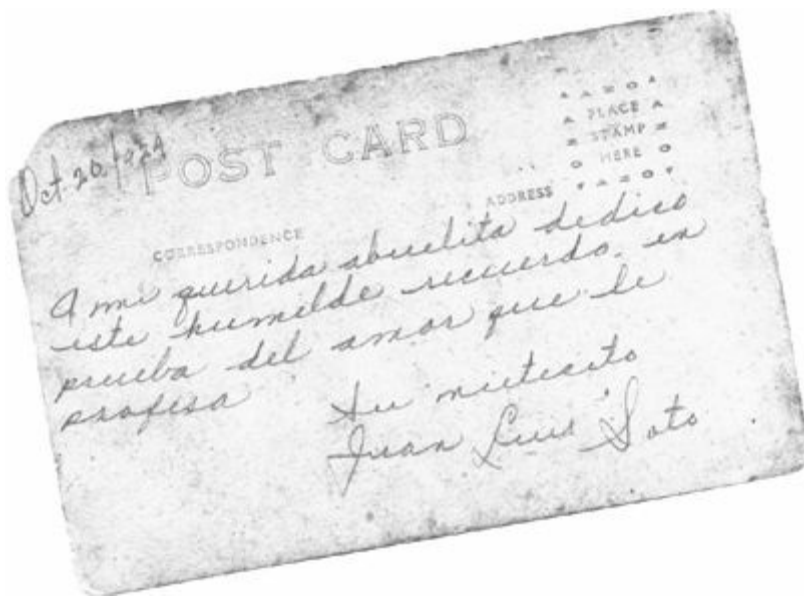 Oct. 20/1924
POST CARD
AZO
PLACE
STAMP
HERE
AZO
CORRESPONDENCE
ADDRESS
A mi querida abuelita dedico
este humilde recuerdo en
prueba del amor que le
profesa
Su nietecito
Juan Luis Soto